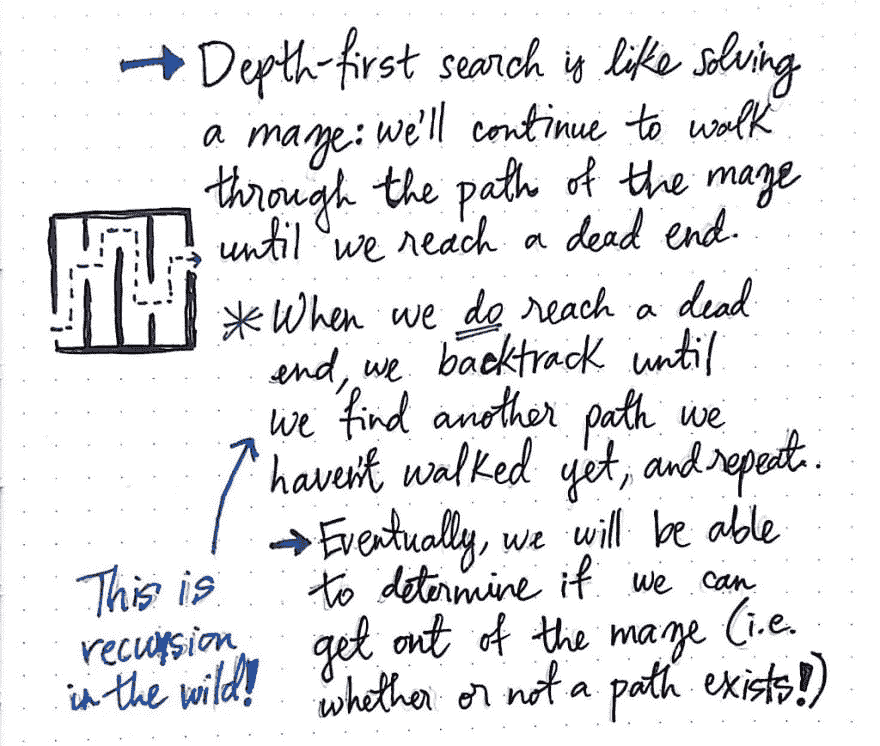 → Depth-first search is like solving
a maze: we'll continue to walk
through the path of the maze
until we reach a dead end.
* When we do reach a dead
end, we backtrack until
we find another path we
haven't walked yet, and repeat.
→ Eventually, we will be able
to determine if we can
get out of the maze (i.e.
whether or not a path exists!)
This is
recursion
in the wild!